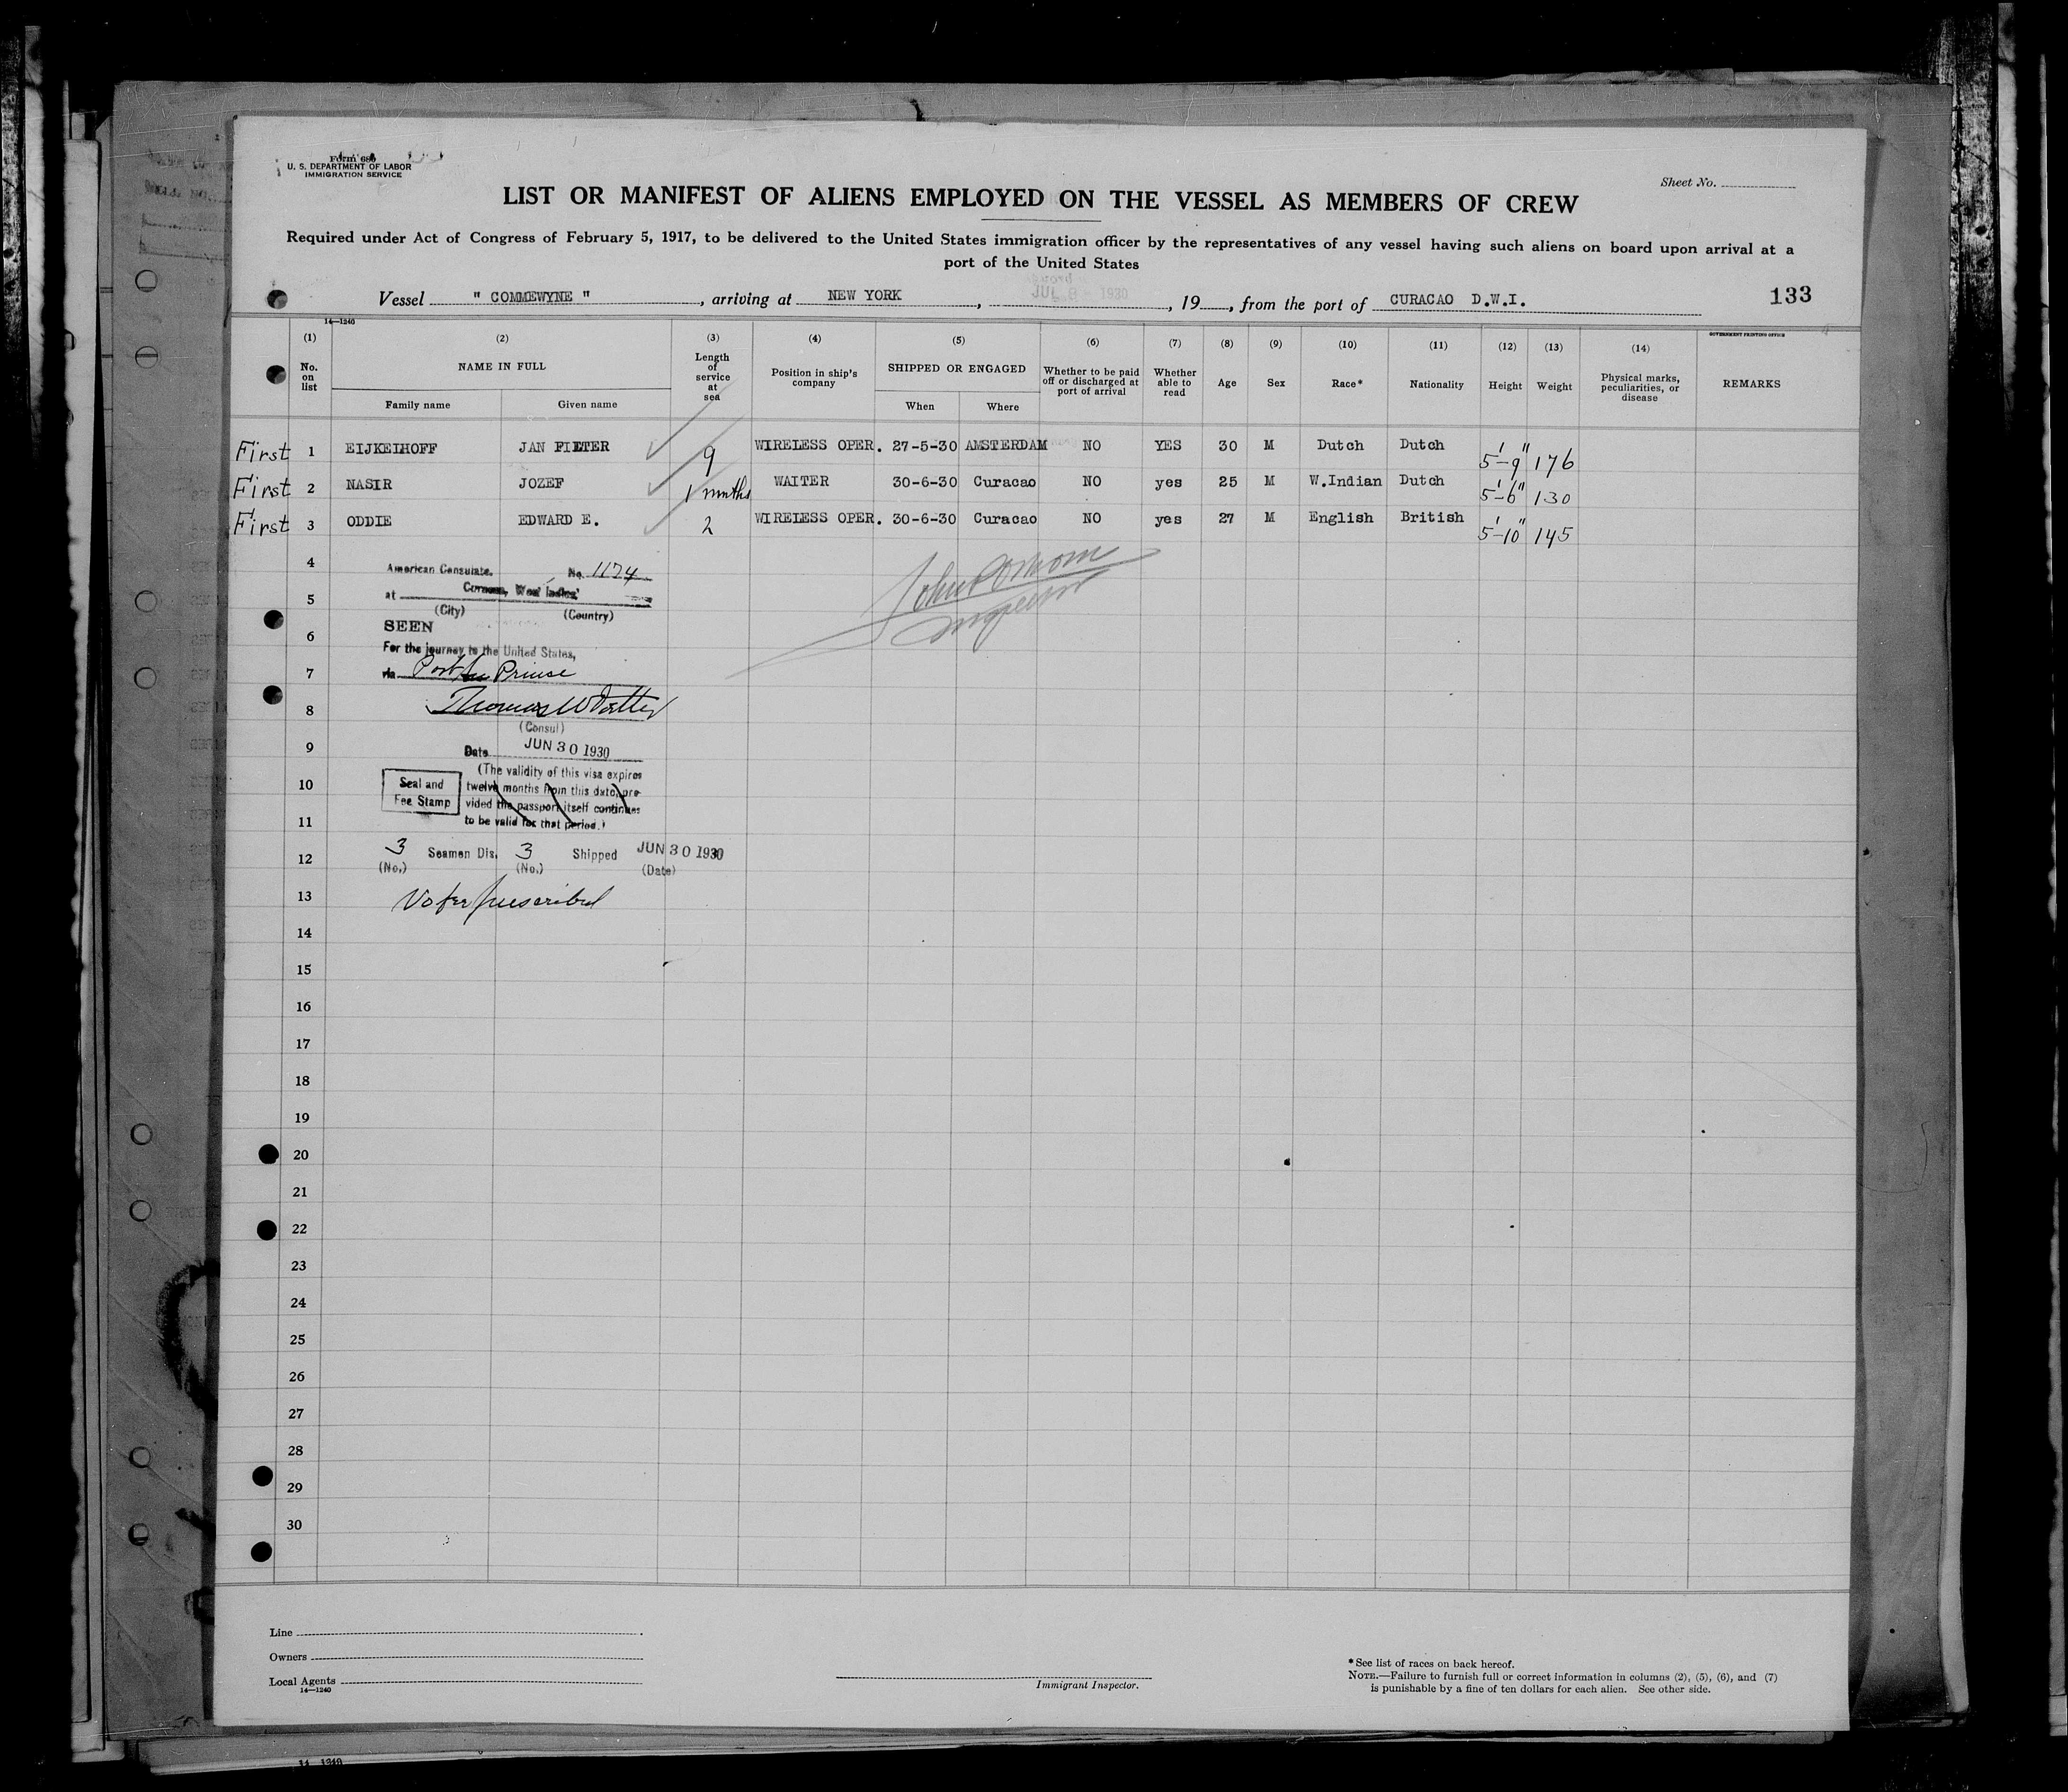 Form 689
U. S. DEPARTMENT OF LABOR
IMMIGRATION SERVICE
Sheet No.
LIST OR MANIFEST OF ALIENS EMPLOYED ON THE VESSEL AS MEMBERS OF CREW
Required under Act of Congress of February 5, 1917, to be delivered to the United States immigration officer by the representatives of any vessel having such aliens on board upon arrival at a
port of the United States
Vessel " COMMEWYNE ", arriving at NEW YORK, JUL 8 - 1930, 19, from the port of CURACAO D.W.I. 133
14—1240
GOVERNMENT PRINTING OFFICE
(1) (2) (3) (4) (5) (6) (7) (8) (9) (10) (11) (12) (13) (14)
No. on list NAME IN FULL Length of service at sea Position in ship's company SHIPPED OR ENGAGED Whether to be paid off or discharged at port of arrival Whether able to read Age Sex Race* Nationality Height Weight Physical marks, peculiarities, or disease REMARKS
Family name Given name When Where
First 1 EIJKELHOFF JAN PIETER 9 WIRELESS OPER. 27-5-30 AMSTERDAM NO YES 30 M Dutch Dutch 5'-9" 176
First 2 NASIR JOZEF 1 months WAITER 30-6-30 Curacao NO yes 25 M W.Indian Dutch 5'-6" 130
First 3 ODDIE EDWARD E. 2 WIRELESS OPER. 30-6-30 Curacao NO yes 27 M English British 5'-10" 145
4
American Consulate. No. 1174
5
at Curacao, West Indies
(City) (Country)
6
SEEN
For the journey to the United States,
7
via Port au Prince
8
Thomas W
(Consul)
9
Date JUN 30 1930
(The validity of this visa expires
10
Seal and Fee Stamp
twelve months from this date, pro-
vided the passport itself continues
11
to be valid for that period.)
12
3 Seamen Dis. 3 Shipped JUN 30 1930
(No.) (No.) (Date)
13
No fee prescribed
John
Inspector
14
15
16
17
18
19
20
21
22
23
24
25
26
27
28
29
30
Line
Owners
Local Agents
14—1240
Immigrant Inspector.
* See list of races on back hereof.
NOTE.—Failure to furnish full or correct information in columns (2), (5), (6), and (7)
is punishable by a fine of ten dollars for each alien. See other side.
14—1240